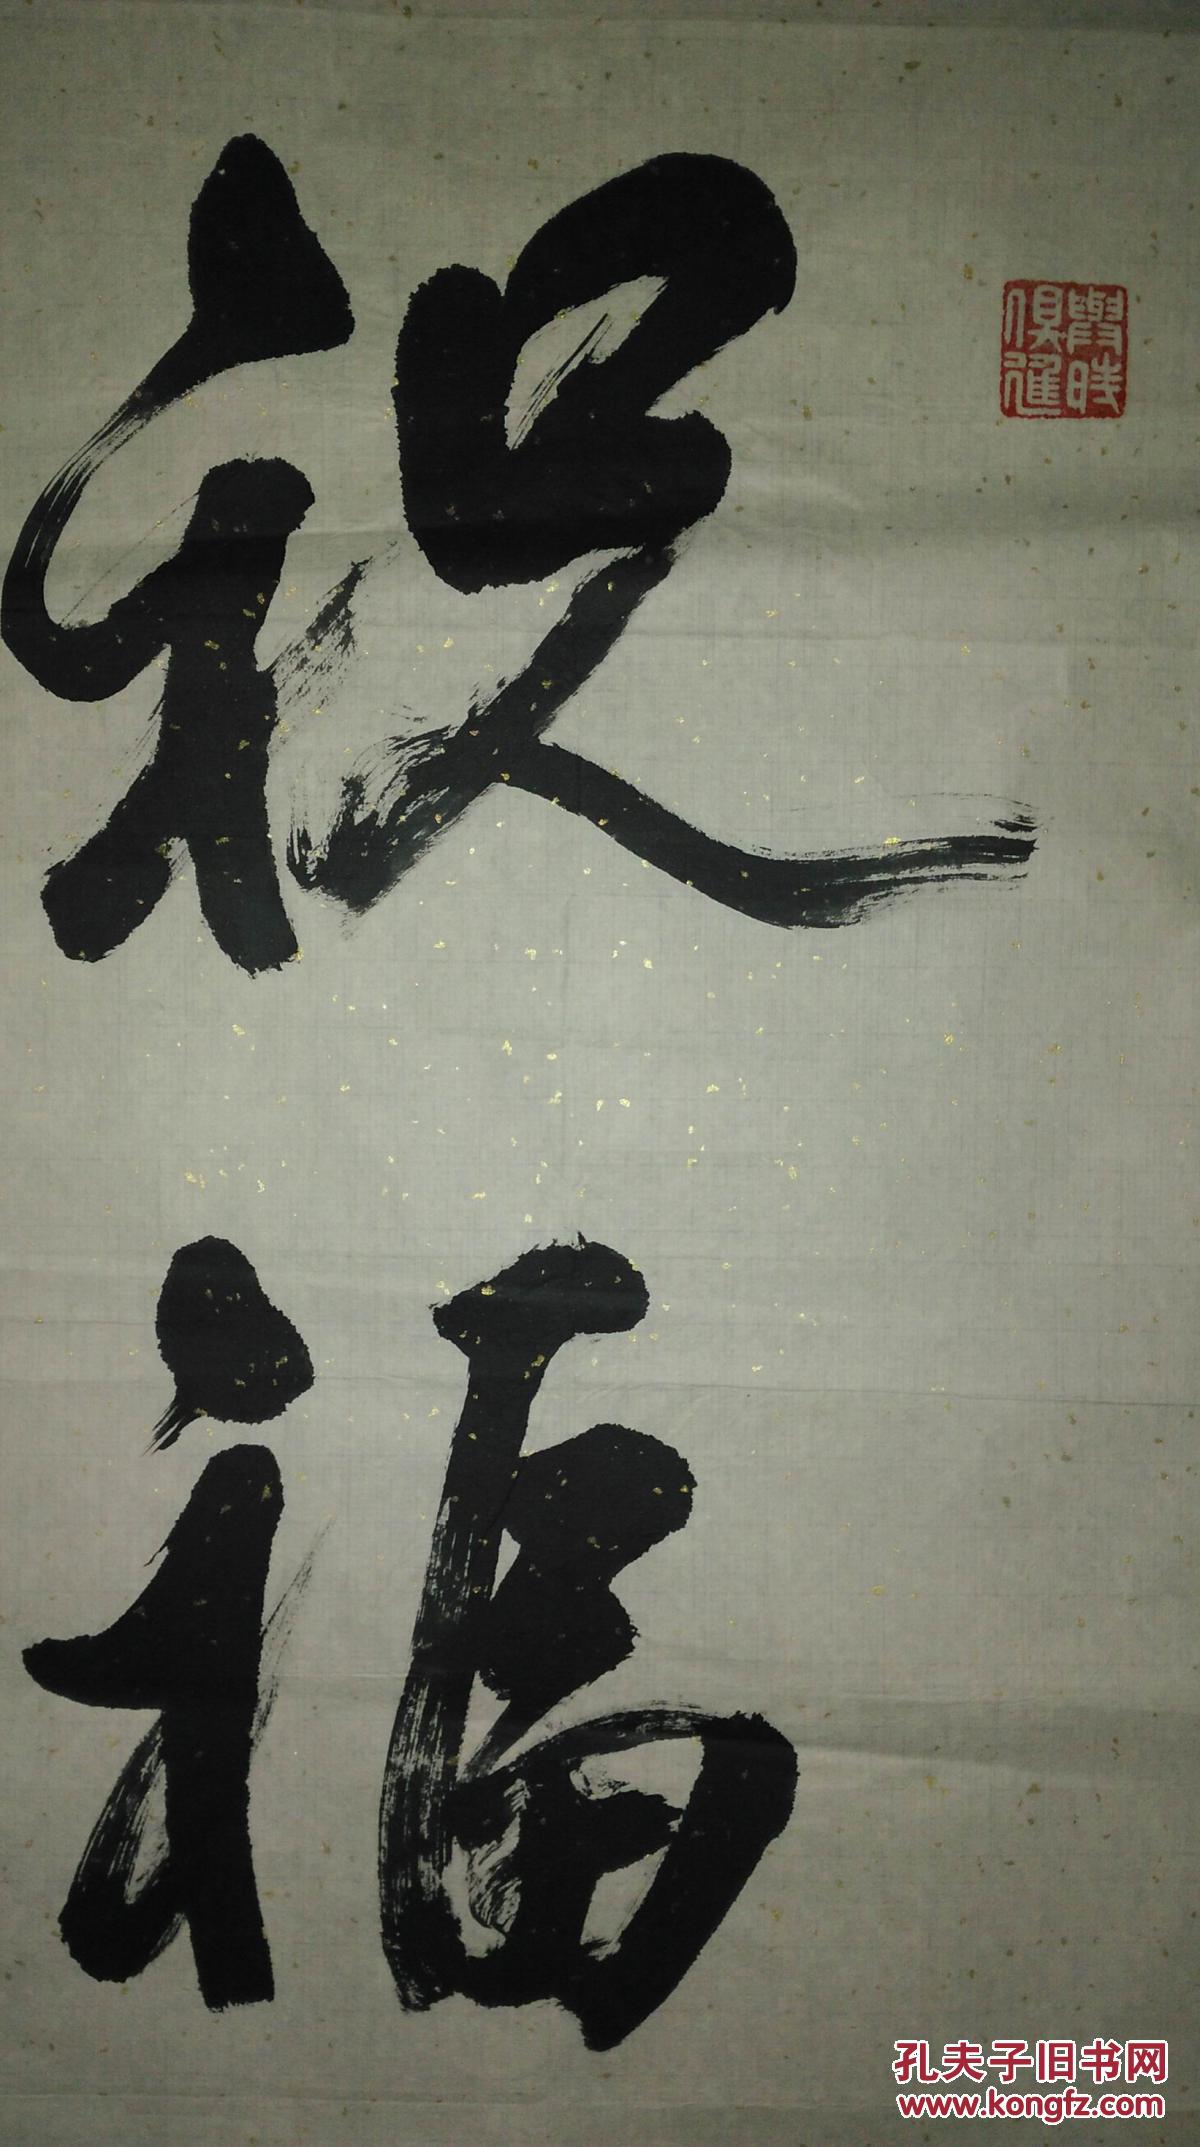 與時
俱進
祝
福
孔夫子旧书网
www.kongfz.com